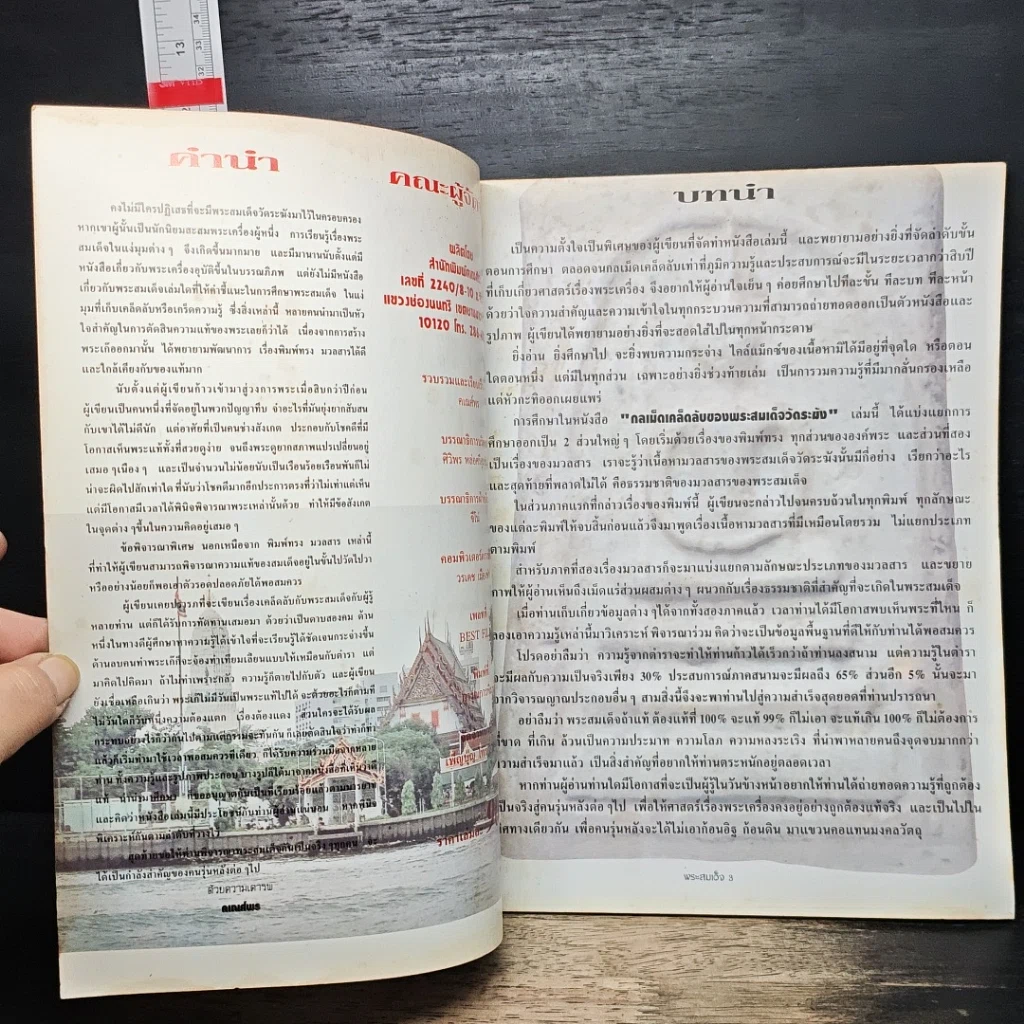 13
34
33
32
คำนำ
คงไม่มีใครปฏิเสธที่จะมีพระสมเด็จวัดระฆังมาไว้ในครอบครอง
หากเขาผู้นั้นเป็นนักนิยมสะสมพระเครื่องผู้หนึ่ง การเรียนรู้เรื่องพระ
สมเด็จในแง่มุมต่าง ๆ จึงเกิดขึ้นมากมาย และมีมานานนับตั้งแต่มี
หนังสือเกี่ยวกับพระเครื่องอุบัติขึ้นในบรรณภิภพ แต่ยังไม่มีหนังสือ
เกี่ยวกับพระสมเด็จเล่มใดที่ให้คำชี้แนะในการศึกษาพระสมเด็จ ในแง่
มุมที่เก็บเคล็ดลับหรือเกร็ดความรู้ ซึ่งสิ่งเหล่านี้ หลายคนนำมาเป็นหัว
ใจสำคัญในการตัดสินความแท้ของพระเลยก็ว่าได้ เนื่องจากการสร้าง
พระเก๊ออกมานั้น ได้พยายามพัฒนาการ เรื่องพิมพ์ทรง มวลสารได้ดี
และใกล้เคียงกับของแท้มาก
นับตั้งแต่ผู้เขียนก้าวเข้ามาสู่วงการพระเมื่อสิบกว่าปีก่อน
ผู้เขียนเป็นคนหนึ่งที่จัดอยู่ในพวกปัญญาทึบ จำอะไรที่มันยุ่งยากสับสน
กับเขาได้ไม่ดีนัก แต่อาศัยที่เป็นคนช่างสังเกต ประกอบกับโชคดีที่มี
โอกาสเห็นพระแท้ทั้งที่สวยดูง่าย จนถึงพระดูยากสภาพแปรเปลี่ยนอยู่
เสมอ ๆเนือง ๆ และเป็นจำนวนไม่น้อยนับเป็นเรือนร้อยเรือนพันก็ไม่
น่าจะผิดไปสักเท่าใด ที่นับว่าโชคดีมากอีกประการตรงที่ว่าไม่เท่าแต่เห็น
แต่มีโอกาสมีเวลาได้พินิจพิจารณาพระเหล่านั้นด้วย ทำให้มีข้อสังเกต
ในจุดต่าง ๆขึ้นในความคิดอยู่เสมอ ๆ
ข้อพิจารณาพิเศษ นอกเหนือจาก พิมพ์ทรง มวลสาร เหล่านี้
ที่ทำให้ผู้เขียนสามารถพิจารณาความแท้ของสมเด็จอยู่ในขั้นไปวัดไปวา
หรืออย่างน้อยก็พอเอาตัวรอดปลอดภัยได้พอสมควร
ผู้เขียนเคยปรารภที่จะเขียนเรื่องเคล็ดลับกับพระสมเด็จกับผู้รู้
หลายท่าน แต่ก็ได้รับการทัดทานเสมอมา ด้วยว่าเป็นดาบสองคม ด้าน
หนึ่งในทางดีผู้ศึกษาหาความรู้ได้เข้าใจที่จะเรียนรู้ได้ชัดเจนกระจ่างขึ้น
ด้านลบคนทำพระเก๊ก็จะจ้องทำเทียมเลียนแบบให้เหมือนกับตำรา แต่
มาคิดไปคิดมา ถ้าไม่ทำเพราะกลัว ความรู้ก็ตายไปกับตัว และผู้เขียน
ยังเชื่อเหลือเกินว่า พระเก๊ไม่มีวันเป็นพระแท้ไปได้ จะด้วยอะไรก็ตามที่
ไม่วันใดก็วันหนึ่งความต้องแตก เรื่องต้องแดง
ด้วยความเคารพ
คเณศ์พร
คณะผู้จัด
ผลิตโดย
เลขที่ 2240/8-10
แขวงช่องนนทรี
10120 โทร.
รวบรวมและเรียบเรียง
บรรณาธิการ
ศิวิพร
บรรณาธิการ
คอมพิวเตอร์
วรเดช
เพลท
BEST
พิมพ์ที่
เพ็ญบุญ
บทนำ
เป็นความตั้งใจเป็นพิเศษของผู้เขียนที่จัดทำหนังสือเล่มนี้ และพยายามอย่างยิ่งที่จัดลำดับขั้น
ตอนการศึกษา ตลอดจนกลเม็ดเคล็ดลับเท่าที่ภูมิความรู้และประสบการณ์จะมีในระยะเวลากว่าสิบปี
ที่เก็บเกี่ยวศาสตร์เรื่องพระเครื่อง จึงอยากให้ผู้อ่านใจเย็น ๆ ค่อยศึกษาไปทีละขั้น ทีละบท ทีละหน้า
ด้วยว่าใจความสำคัญและความเข้าใจในทุกกระบวนความที่สามารถถ่ายทอดออกเป็นตัวหนังสือและ
รูปภาพ ผู้เขียนได้พยายามอย่างยิ่งที่จะสอดใส่ไปในทุกหน้ากระดาษ
ยิ่งอ่าน ยิ่งศึกษาไป จะยิ่งพบความกระจ่าง ไคล์แม็กซ์ของเนื้อหามิได้มีอยู่ที่จุดใด หรือตอน
ใดตอนหนึ่ง แต่มีในทุกส่วน เฉพาะอย่างยิ่งช่วงท้ายเล่ม เป็นการรวมความรู้ที่มีมากลั่นกรองเหลือ
แต่หัวกะทิออกเผยแพร่
การศึกษาในหนังสือ "กลเม็ดเคล็ดลับของพระสมเด็จวัดระฆัง" เล่มนี้ ได้แบ่งแยกการ
ศึกษาออกเป็น 2 ส่วนใหญ่ ๆ โดยเริ่มด้วยเรื่องของพิมพ์ทรง ทุกส่วนขององค์พระ และส่วนที่สอง
เป็นเรื่องของมวลสาร เราจะรู้ว่าเนื้อหามวลสารของพระสมเด็จวัดระฆังนั้นมีกี่อย่าง เรียกว่าอะไร
และสุดท้ายที่พลาดไม่ได้ คือธรรมชาติของมวลสารของพระสมเด็จ
ในส่วนภาคแรกที่กล่าวเรื่องของพิมพ์นี้ ผู้เขียนจะกล่าวไปจนครบถ้วนในทุกพิมพ์ ทุกลักษณะ
ของแต่ละพิมพ์ให้จบสิ้นก่อนแล้วจึงมาพูดเรื่องเนื้อหามวลสารที่มีเหมือนโดยรวม ไม่แยกประเภท
ตามพิมพ์
สำหรับภาคที่สองเรื่องมวลสารก็จะมาแบ่งแยกตามลักษณะประเภทของมวลสาร และขยาย
ภาพให้ผู้อ่านเห็นถึงเม็ดแร่ส่วนผสมต่าง ๆ ผนวกกับเรื่องธรรมชาติที่สำคัญที่จะเกิดในพระสมเด็จ
เมื่อท่านเก็บเกี่ยวข้อมูลต่าง ๆได้จากทั้งสองภาคแล้ว เวลาท่านได้มีโอกาสพบเห็นพระที่ไหน ก็
ลองเอาความรู้เหล่านี้มาวิเคราะห์ พิจารณาร่วม คิดว่าจะเป็นข้อมูลพื้นฐานที่ดีให้กับท่านได้พอสมควร
โปรดอย่าลืมว่า ความรู้จากตำราจะทำให้ท่านก้าวได้เร็วกว่าถ้าท่านลงสนาม แต่ความรู้ในตำรา
จะมีผลกับความเป็นจริงเพียง 30% ประสบการณ์ภาคสนามจะมีผลถึง 65% ส่วนอีก 5% นั้นจะมา
จากวิจารณญาณประกอบอื่น ๆ สามสิ่งนี้จึงจะพาท่านไปสู่ความสำเร็จสุดยอดที่ท่านปรารถนา
อย่าลืมว่า พระสมเด็จถ้าแท้ ต้องแท้ที่ 100% จะแท้ 99% ก็ไม่เอา จะแท้เกิน 100% ก็ไม่ต้องการ
ที่ขาด ที่เกิน ล้วนเป็นความประมาท ความโลภ ความหลงระเริง ที่นำพาหลายคนถึงจุดจบมากกว่า
ความสำเร็จมาแล้ว เป็นสิ่งสำคัญที่อยากให้ท่านตระหนักอยู่ตลอดเวลา
หากท่านผู้อ่านท่านใดมีโอกาสที่จะเป็นผู้รู้ในวันข้างหน้าอยากให้ท่านได้ถ่ายทอดความรู้ที่ถูกต้อง
เป็นจริงสู่คนรุ่นหลังต่อ ๆไป เพื่อให้ศาสตร์เรื่องพระเครื่องคงอยู่อย่างถูกต้องแท้จริง และเป็นไปใน
ทิศทางเดียวกัน เพื่อคนรุ่นหลังจะได้ไม่เอาก้อนอิฐ ก้อนดิน มาแขวนคอแทนมงคลวัตถุ
พระสมเด็จ 3